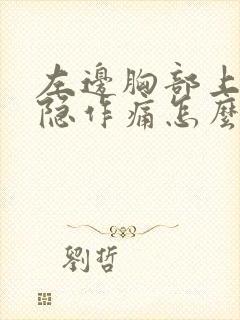 左邊胸部上
隐作痛怎麼
劉哲